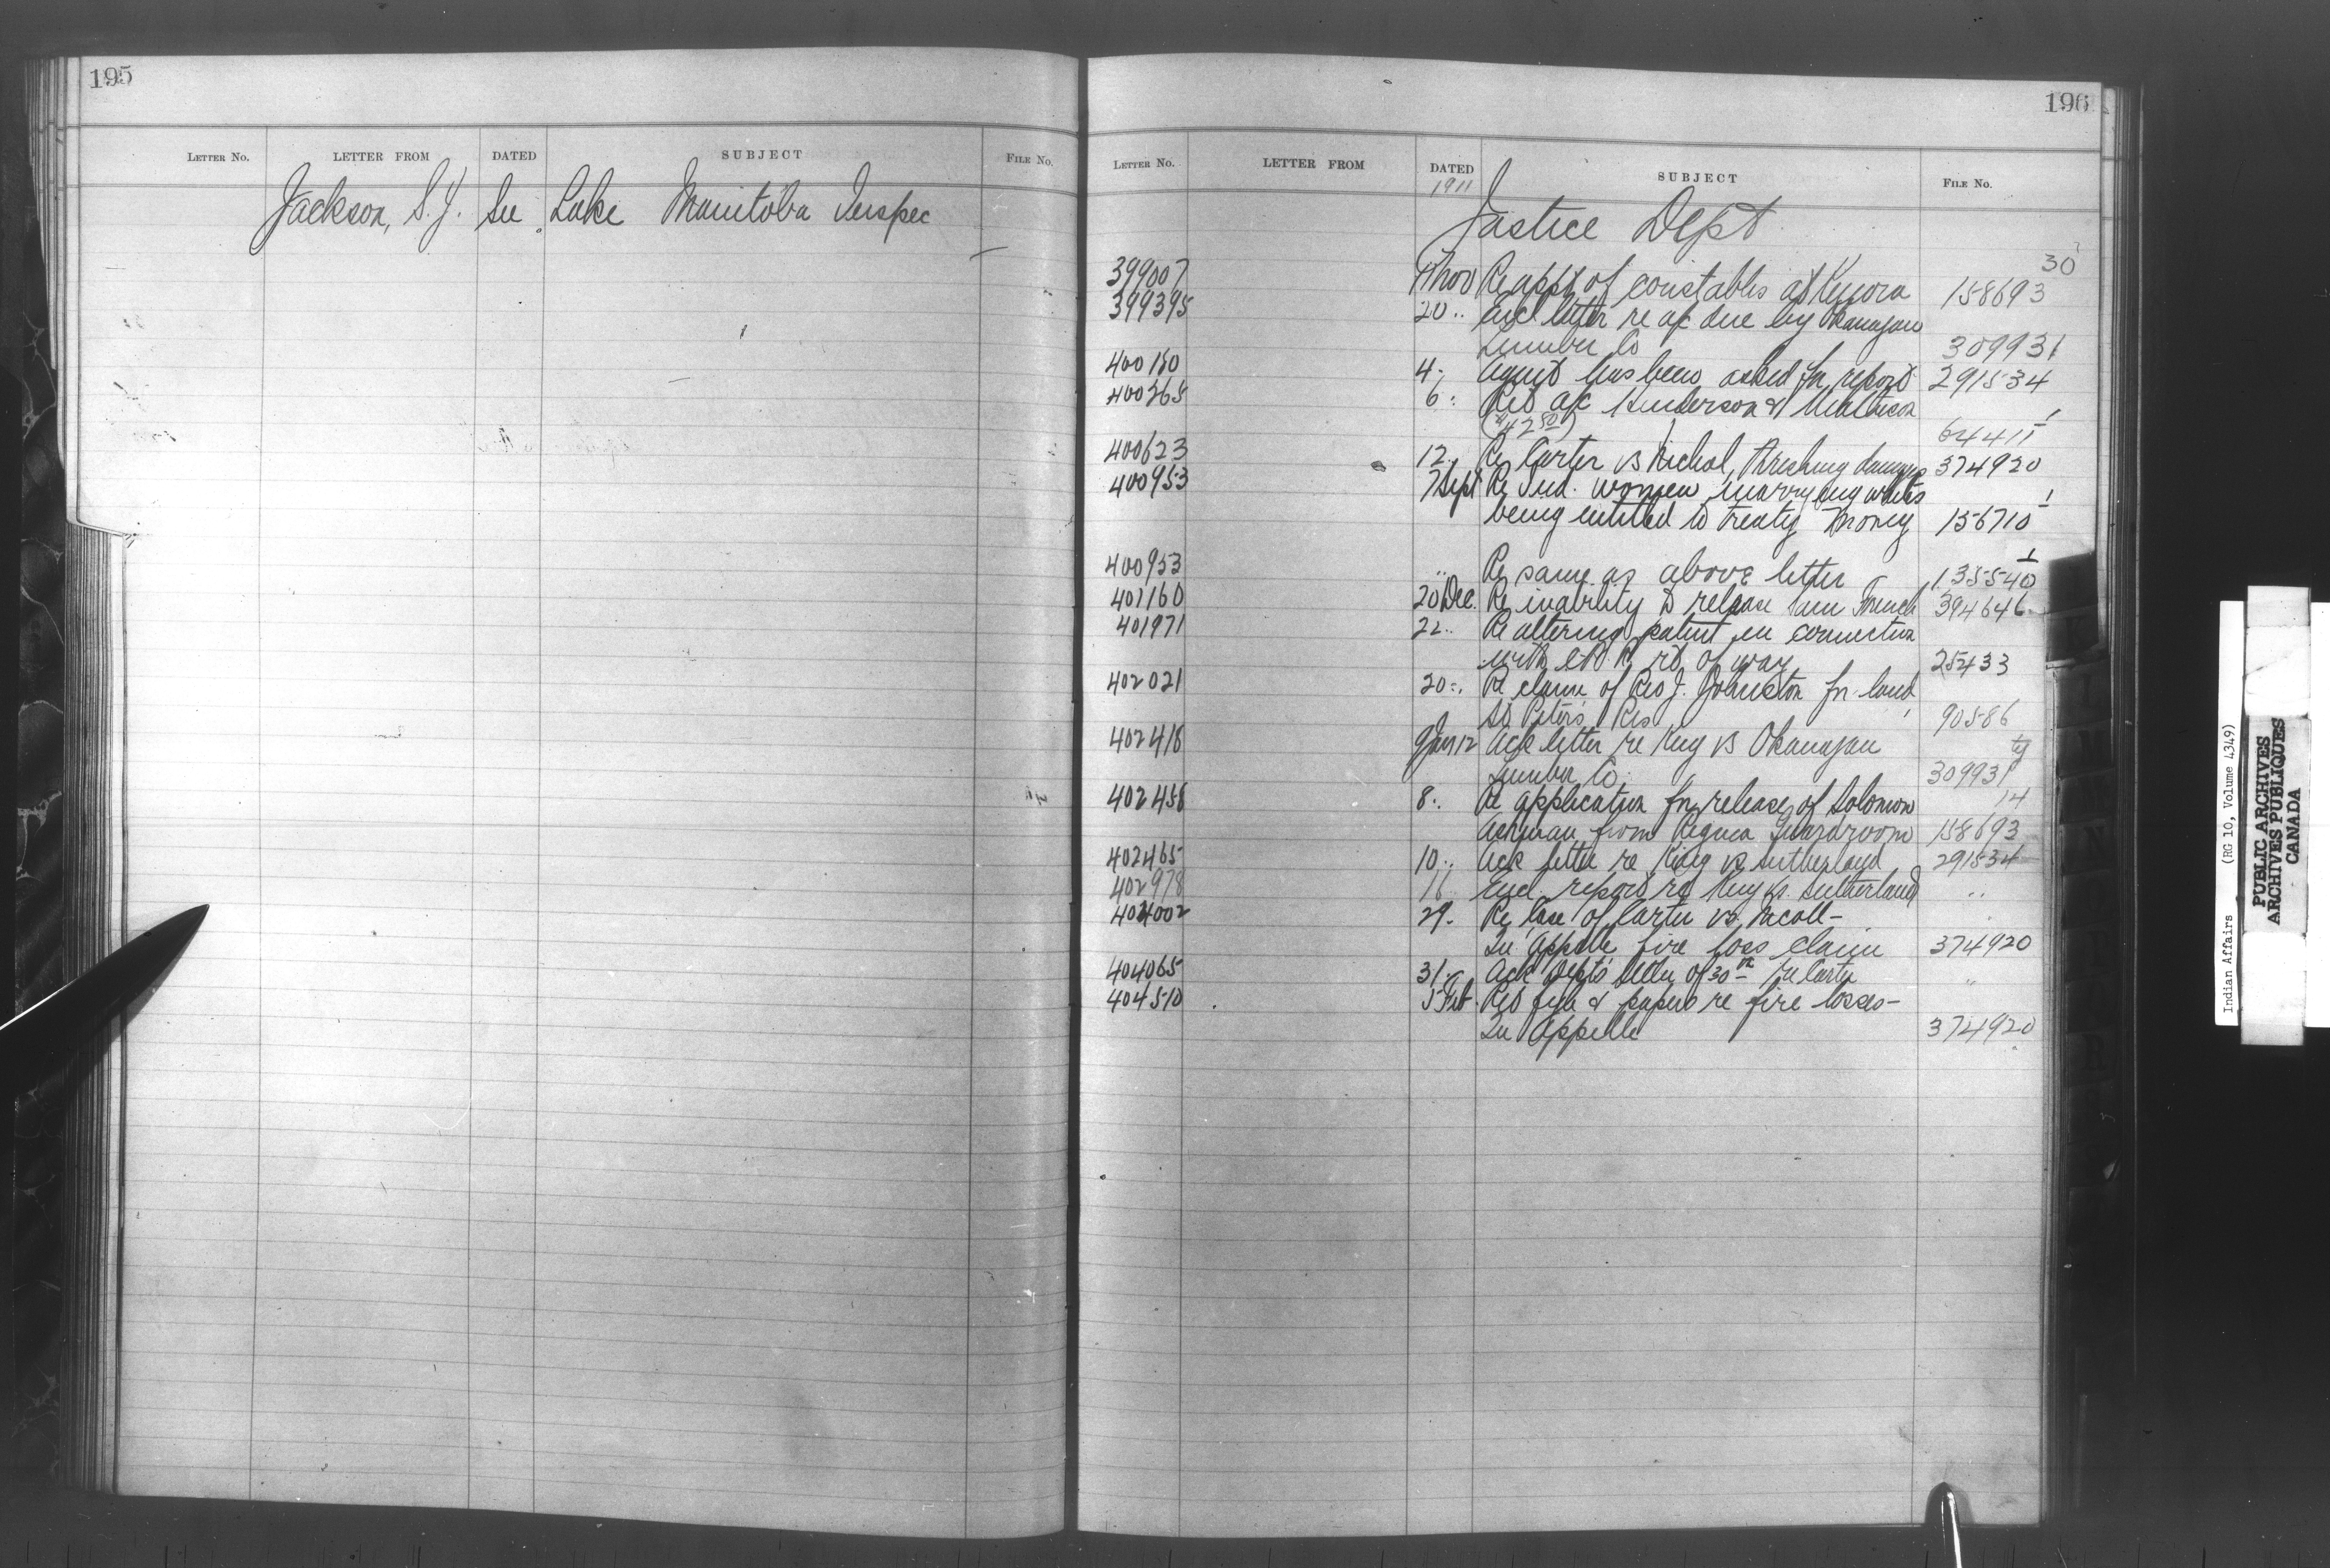 195
LETTER No. LETTER FROM DATED SUBJECT FILE No.
Jackson, S. J. See Lake Manitoba Inspec
196
LETTER No. LETTER FROM DATED SUBJECT FILE No.
1911
Justice Dept
30
399007 Nov Re appt of constables at Kenora 158693
399395 20 " Encl letter re a/c due by Okanagan
Lumber Co 309931
400180 4 " Agent has been asked for report 291534
400365 6 " Ret a/c Henderson &
($42.50) 64411
400623 12 " Re Carter vs Nichol, threshing damages 374920
400953 7 Sept Re Ind. women marrying whites
being entitled to treaty money 156710
400953 " Re same as above letter 135540
401160 20 Dec. Re inability to release Sam French 394646
401971 22 " Re altering patent in connection
with rt of way 25433
402021 20 " Re claim of Rev J. Johnston for land,
St Peters Res 90586
402418 9 Jan 12 Ack letter re King vs Okanagan
Lumber Co. 309931
14
402458 8 " Re application for release of Solomon
from Regina Guardroom 158693
402465 10 " Ack letter re King vs Sutherland 291534
402978 16 Encl. report re King vs. Sutherland "
404002 29 " Re Case of Carter vs. Nicoll -
Qu'Appelle fire loss claim 374920
404065 31 " Ack Dept's letter of 30th re Carter "
404510 5 Feb. Ret file & papers re fire losses -
Qu'Appelle 374920
Indian Affairs (RG 10, Volume 4349)
PUBLIC ARCHIVES
ARCHIVES PUBLIQUES
CANADA